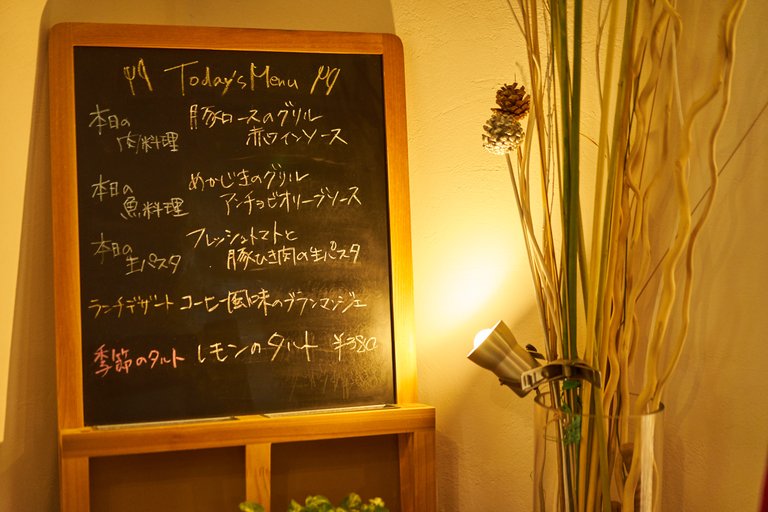 Today's Menu
本日の 豚ロースのグリル
肉料理 赤ワインソース
本日の めかじきのグリル
魚料理 アンチョビオリーブソース
本日の フレッシュトマトと
生パスタ 豚ひき肉の生パスタ
ランチデザート コーヒー風味のブランマンジェ
季節のタルト レモンのタルト ¥380